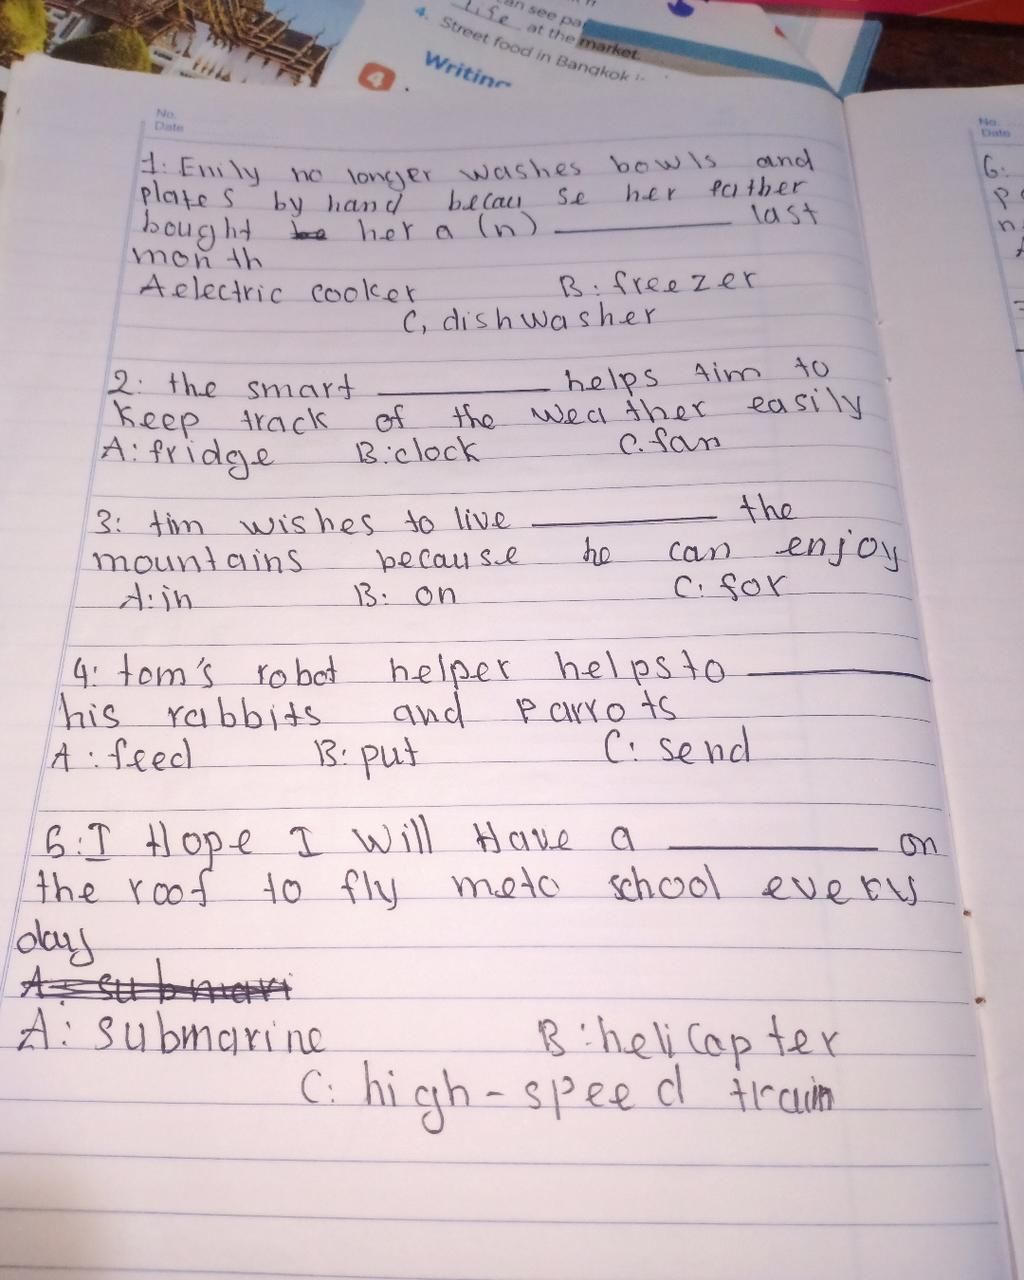 an see pa
Life at the market.
4. Street food in Bangkok i
4 Writing
No.
Date
1: Emily no longer washes bowls and
plates by hand because her father
bought her a (n) ________ last
month
A electric cooker B: freezer
C, dishwasher
2: the smart ________ helps tim to
keep track of the weather easily
A: fridge B: clock C. fan
3: tim wishes to live ________ the
mountains because he can enjoy
A: in B: on C: for
4: tom's robot helper helps to ________
his rabbits and parrots
A: feed B: put C: send
5: I Hope I will Have a ________ on
the roof to fly meto school every
day
A: submari
A: submarine B: helicapter
C: high-speed train
No.
Date
6: